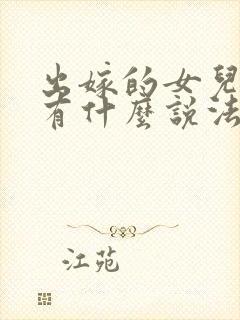 出嫁的女兒
有什麼説法
江苑